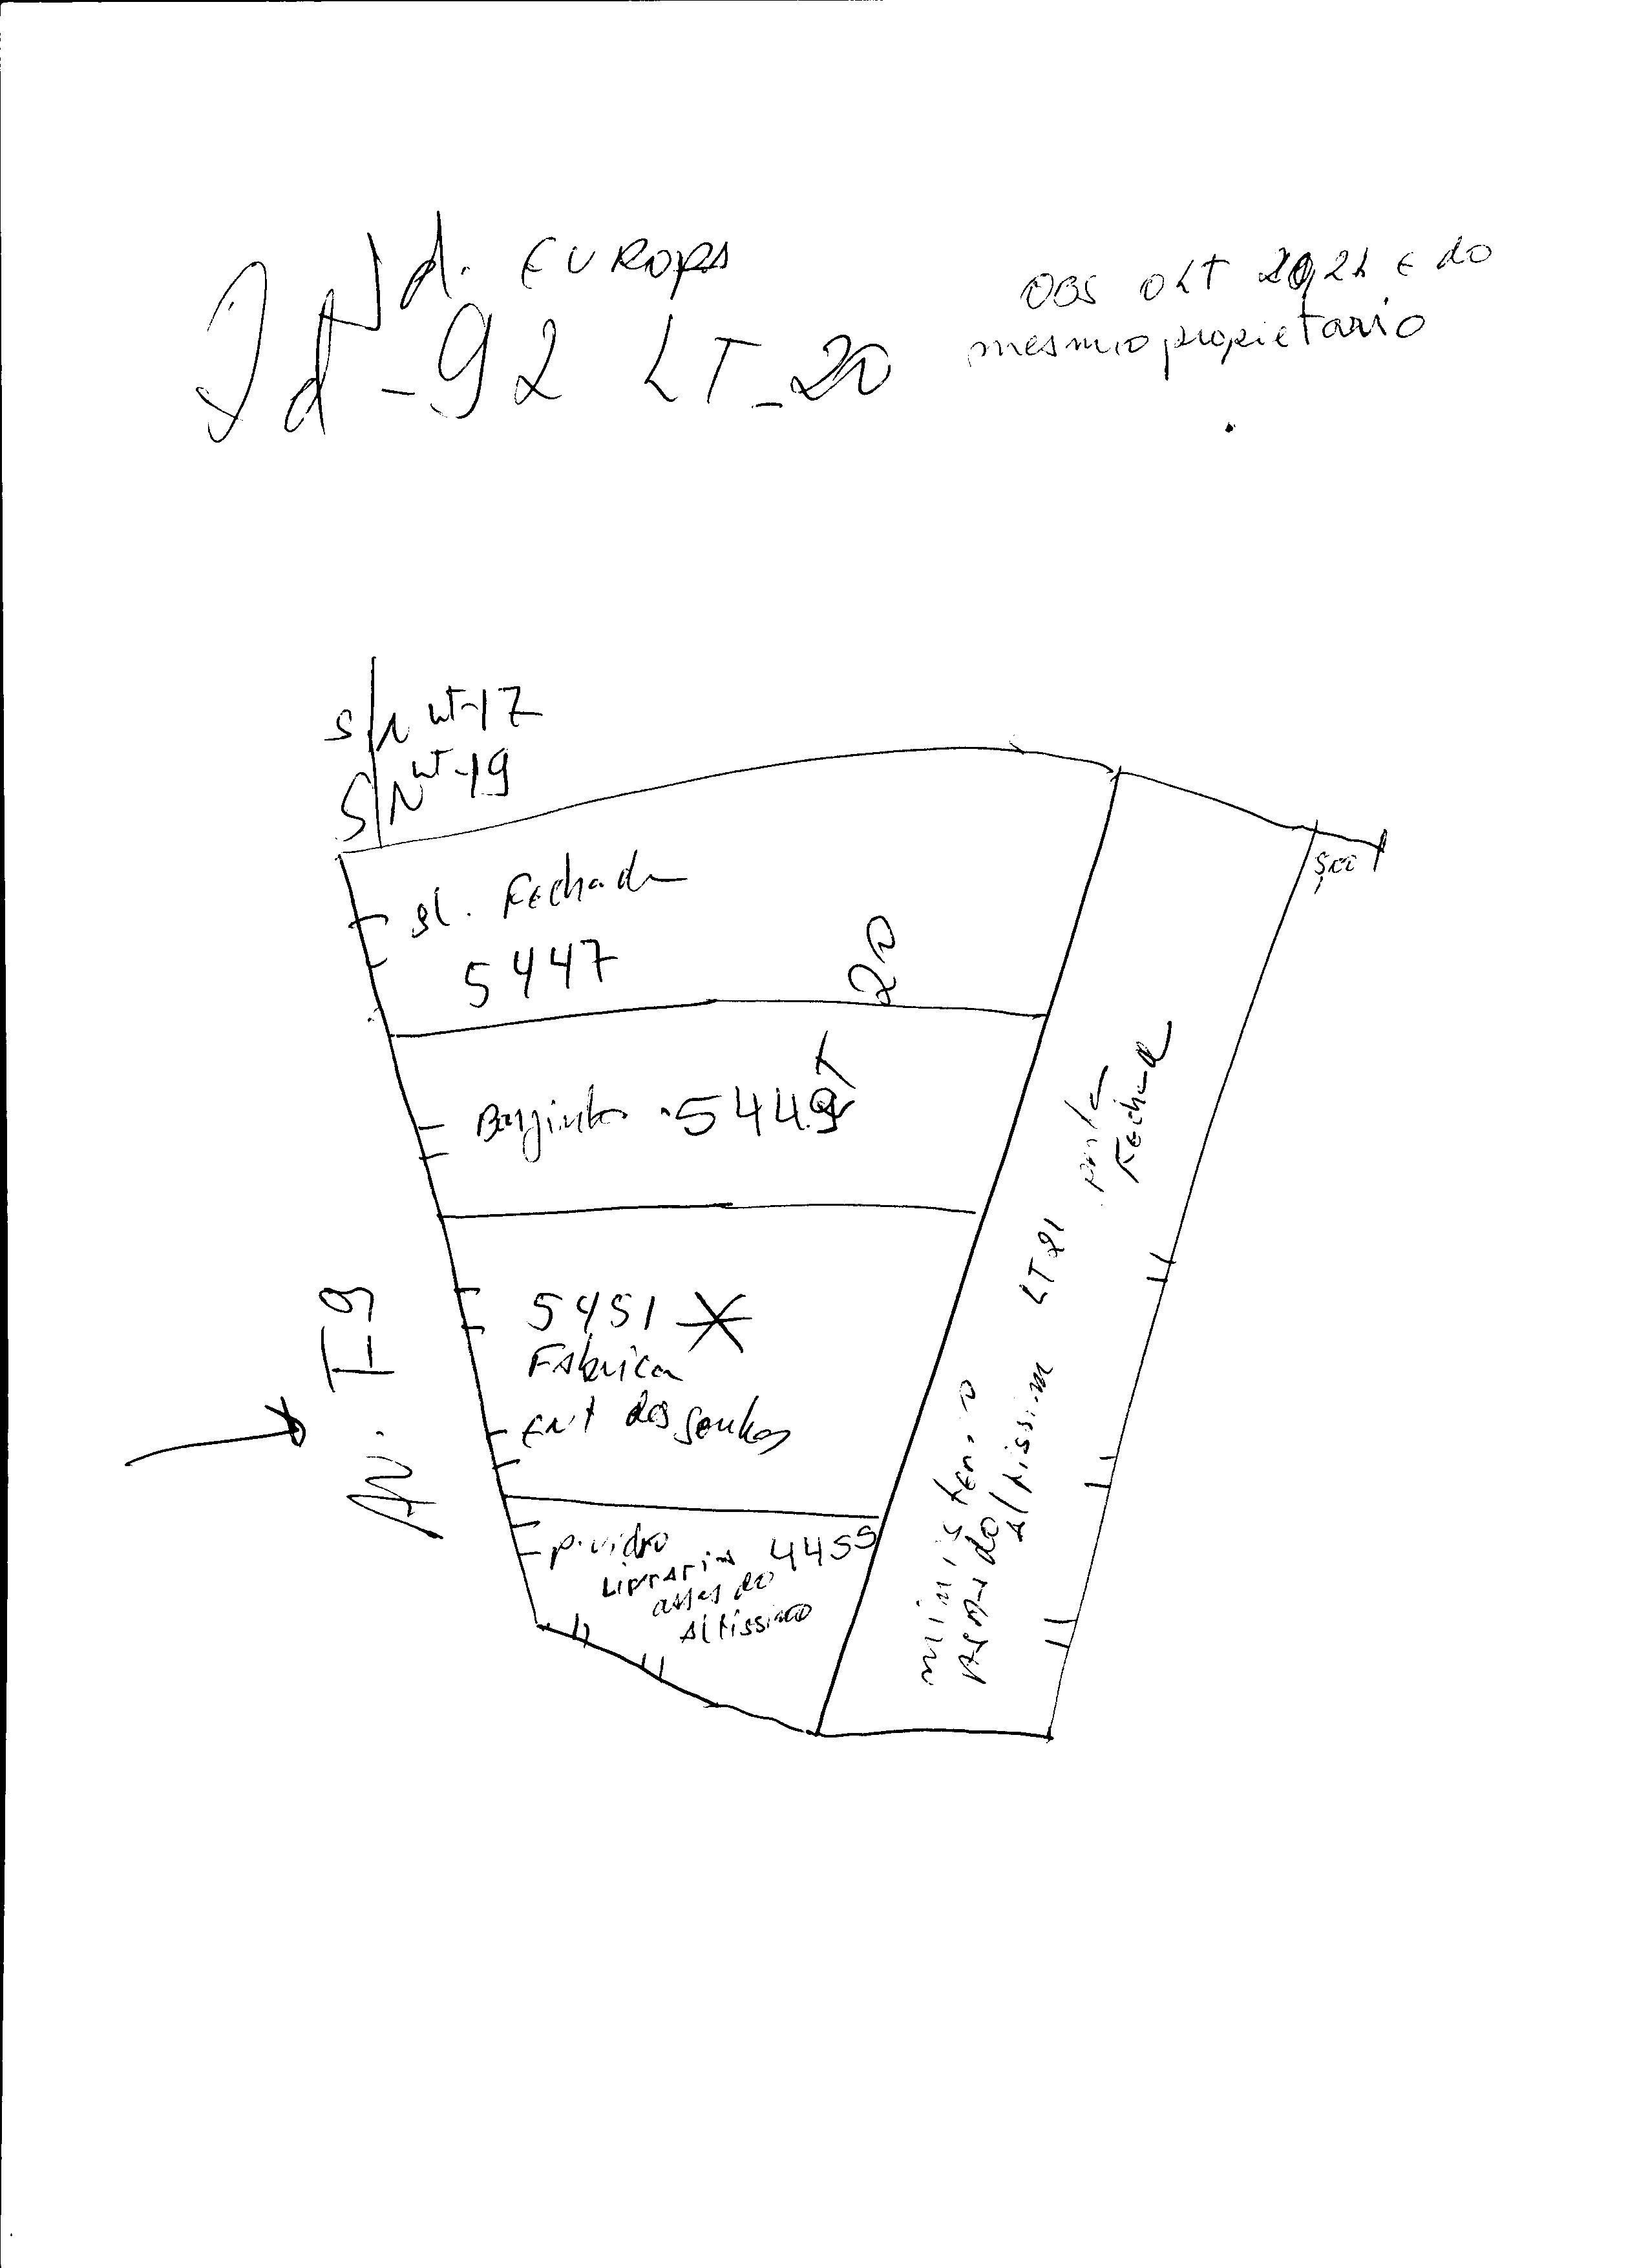 Jd. EUROPA
Qd-92 LT-20
OBS O LT 20,21 E do
mesmo proprietario
S/N LT-17
S/N LT-19
sl. Fechada
5447
20
5449
LT
5451
Fabrica
Ent dos sonhos
P. vidro
Livraria 4455
asas do
Altissimo
Av. T-9
ministerio
do
altissim
LT 21
porta
Fechad